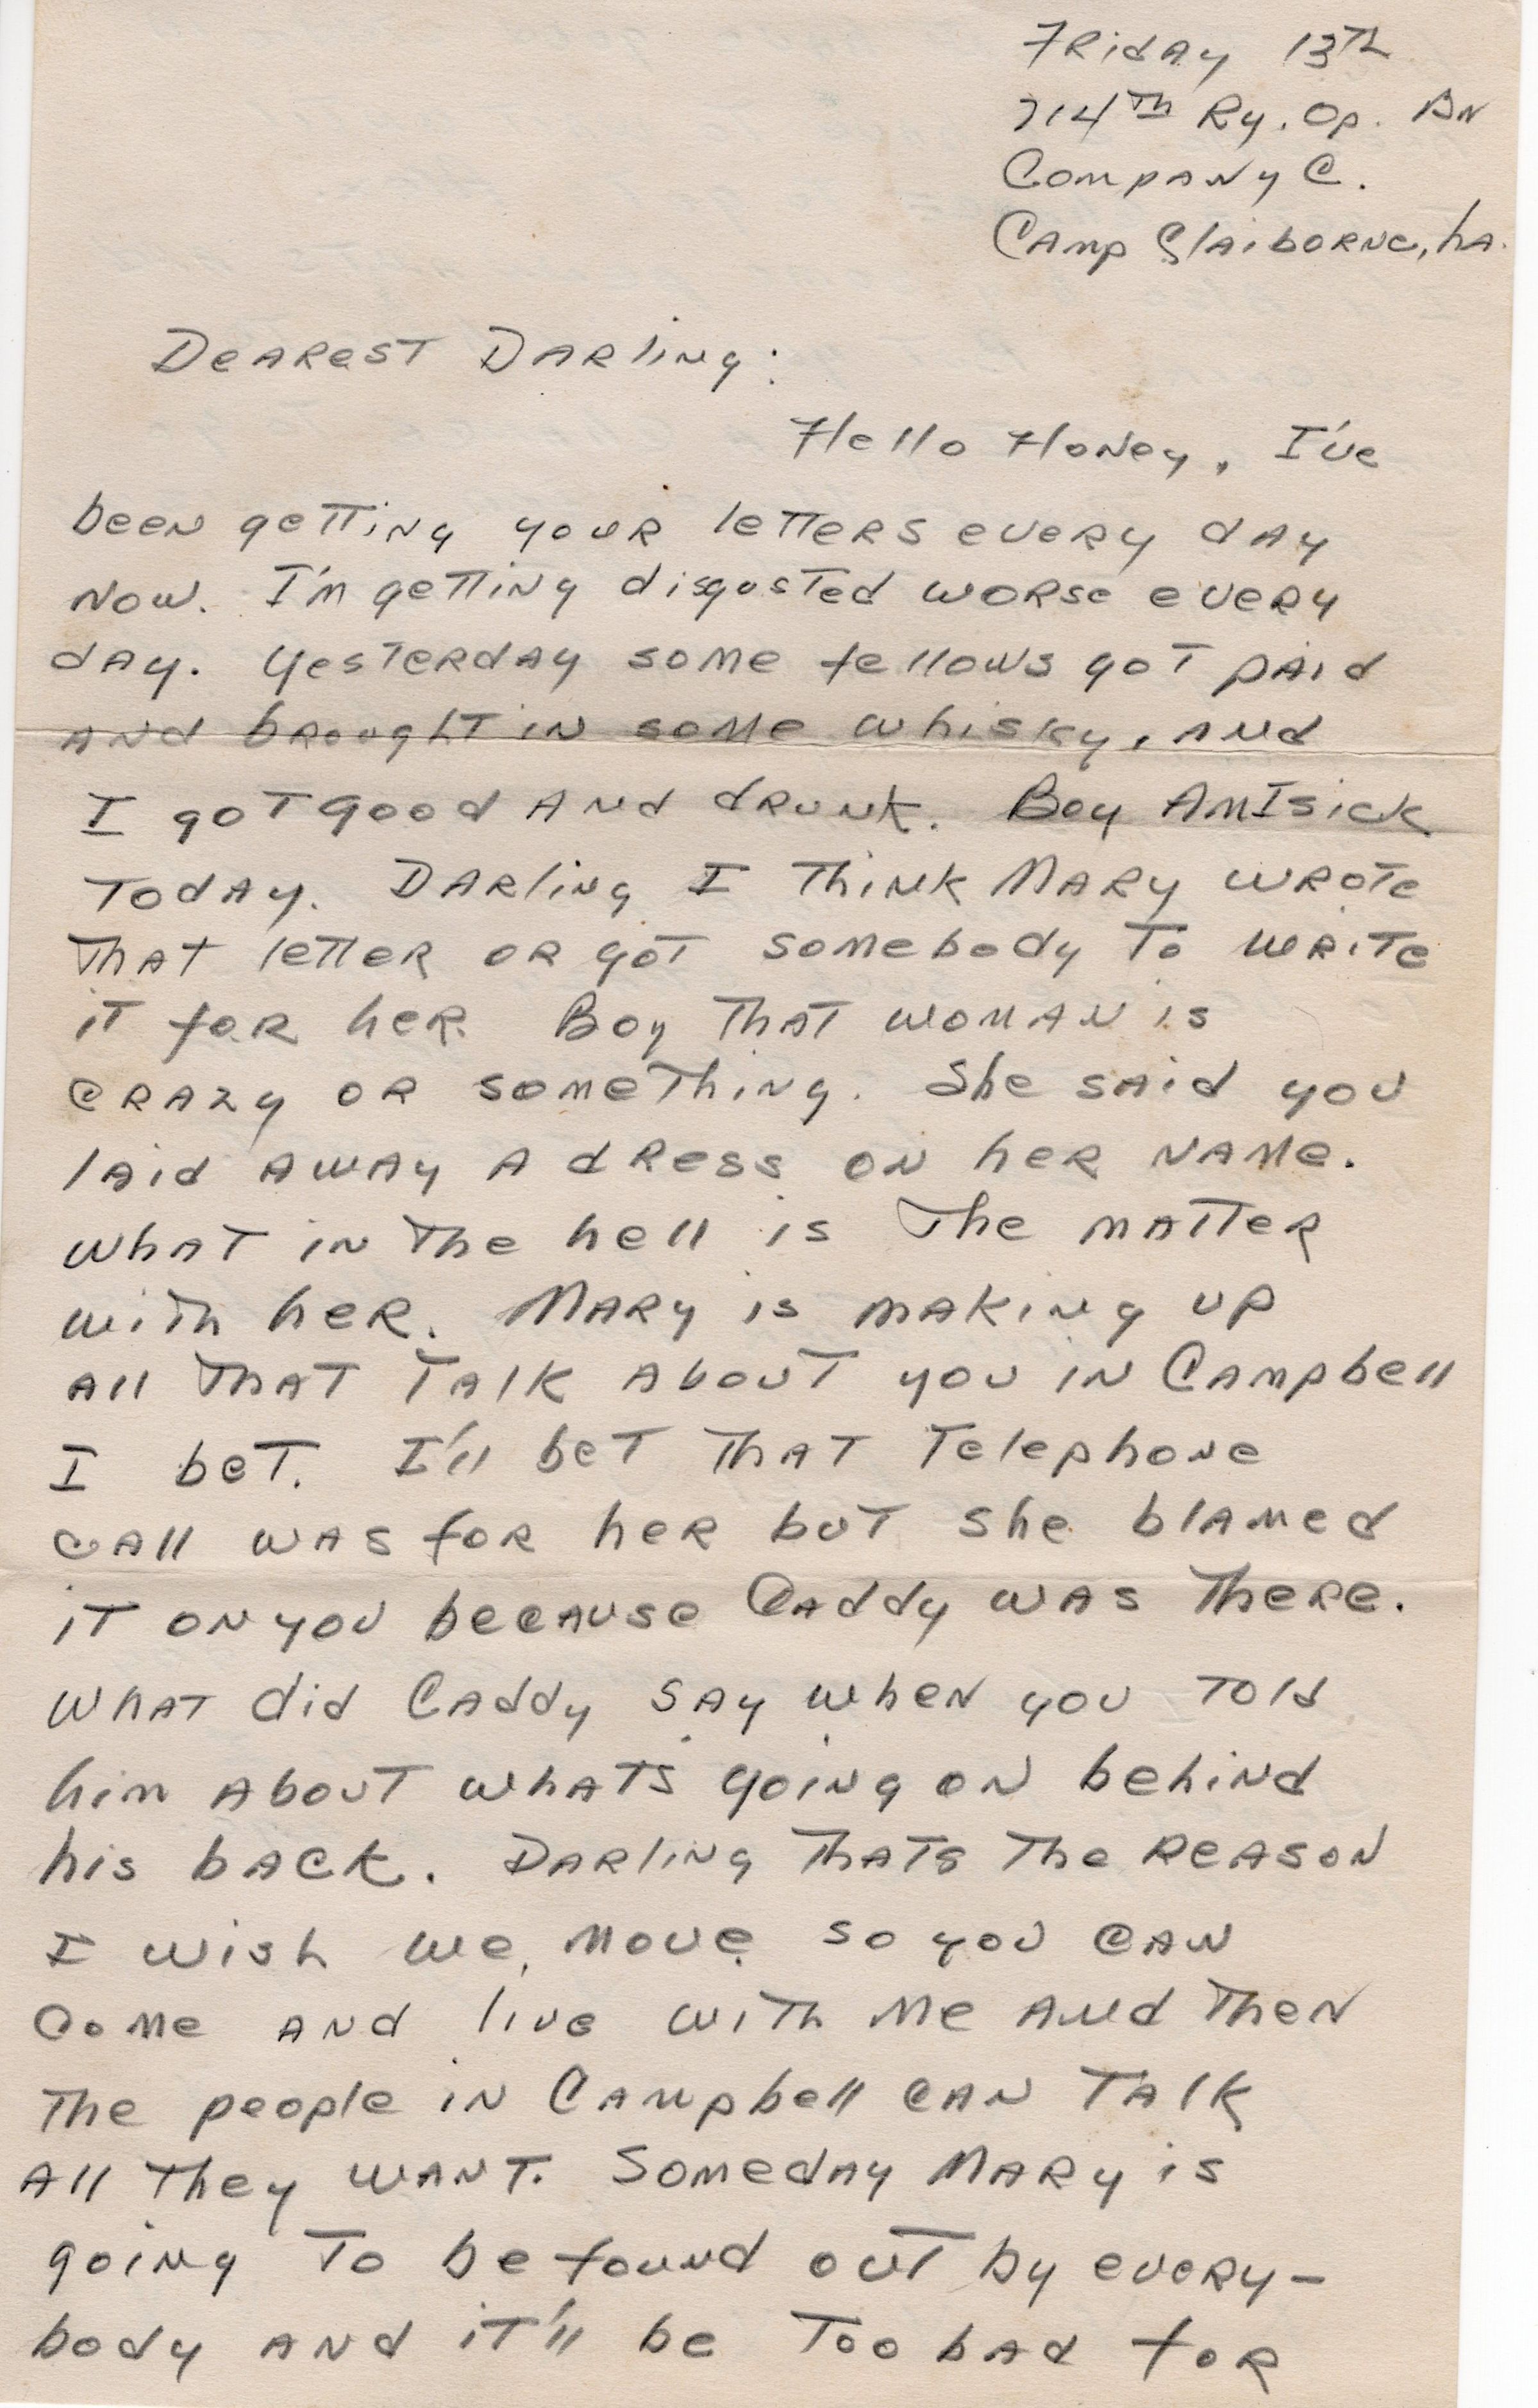 Friday 13th
714th Ry. Op. Bn
Company C.
Camp Claiborne, La.
Dearest Darling:
Hello Honey, I've
been getting your letters every day
now. I'm getting disgusted worse every
day. Yesterday some fellows got paid
and brought in some whisky, and
I got good and drunk. Boy Am I sick
today. Darling I think Mary wrote
that letter or got somebody to write
it for her. Boy that woman is
crazy or something. She said you
laid away a dress on her name.
What in the hell is the matter
with her. Mary is making up
all that talk about you in Campbell
I bet. I'll bet that telephone
call was for her but she blamed
it on you because Caddy was there.
What did Caddy say when you told
him about whats going on behind
his back. Darling thats the reason
I wish we move so you can
come and live with me and then
the people in Campbell can talk
all they want. Someday Mary is
going to be found out by every-
body and it'll be too bad for